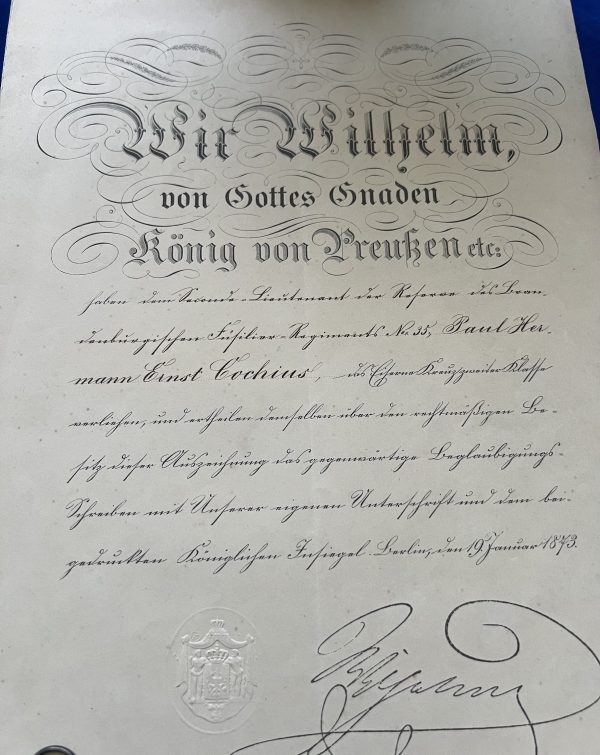 Wir Wilhelm,
von Gottes Gnaden
König von Preußen etc:
haben dem Seconde-Lieutenant der Reserve des Bran-
denburgischen Füsilier-Regiments No. 35, Paul Her-
mann Ernst Cochius, das Eiserne Kreuz zweiter Klasse
verliehen, und ertheilen demselben über den rechtmäßigen Be-
sitz dieser Auszeichnung das gegenwärtige Beglaubigungs-
Schreiben mit Unserer eigenen Unterschrift und dem bei-
gedruckten Königlichen Insiegel. Berlin, den 19. Januar 1873.
Wilhelm